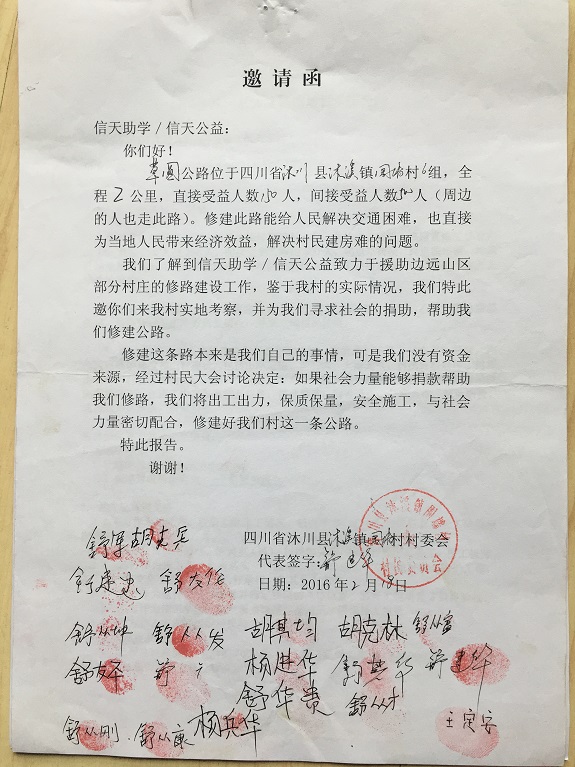 邀请函
信天助学/信天公益：
你们好！
草圆公路位于四川省沐川县沐溪镇围垇村6组，全
程2公里，直接受益人数150人，间接受益人数500人（周边
的人也走此路）。修建此路能给人民解决交通困难，也直接
为当地人民带来经济效益，解决村民建房难的问题。
我们了解到信天助学/信天公益致力于援助边远山区
部分村庄的修路建设工作，鉴于我村的实际情况，我们特此
邀你们来我村实地考察，并为我们寻求社会的捐助，帮助我
们修建公路。
修建这条路本来是我们自己的事情，可是我们没有资金
来源，经过村民大会讨论决定：如果社会力量能够捐款帮助
我们修路，我们将出工出力，保质保量，安全施工，与社会
力量密切配合，修建好我们村这一条公路。
特此报告。
谢谢！
四川省沐川县沐溪镇村村委会
代表签字：舒建华
日期：2016年2月18日
舒军 胡克兵
舒友作
舒从坤 舒从发 胡其均 胡克林 舒从富
舒友泽 杨进华 舒其华 舒建华
舒华贵 舒从才
舒从刚 舒从康 杨兵华 王定安